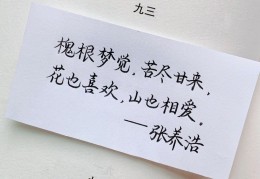 九三
槐根梦觉，苦尽甘来，
花也喜欢，山也相爱。
——张养浩